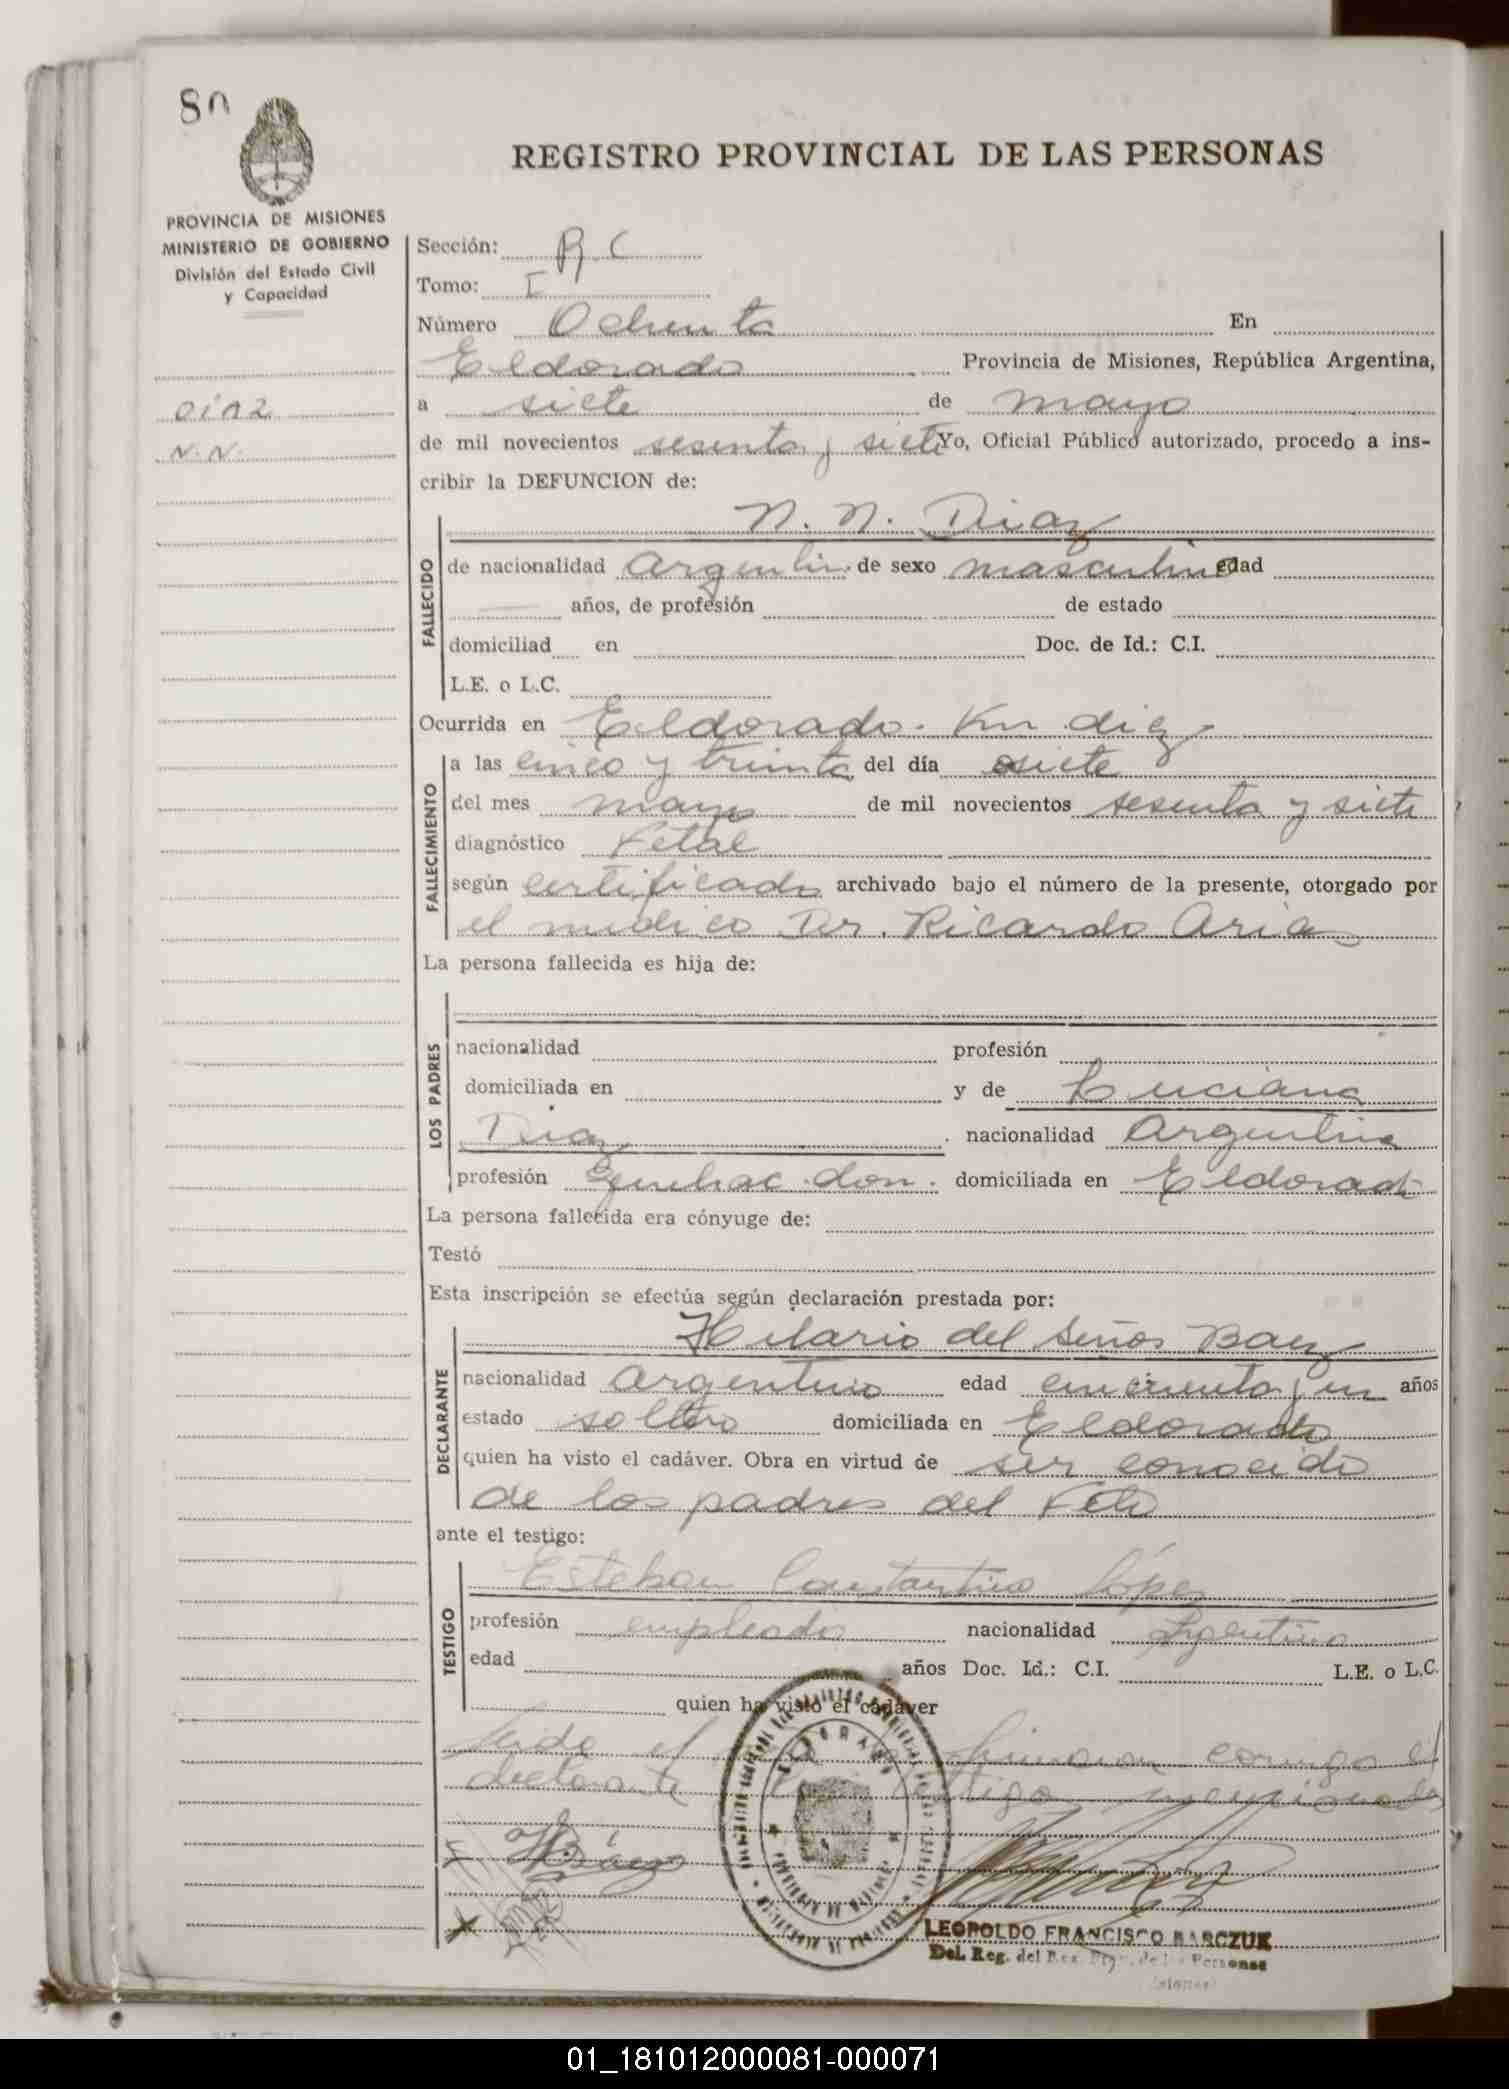 80
REGISTRO PROVINCIAL DE LAS PERSONAS
PROVINCIA DE MISIONES
MINISTERIO DE GOBIERNO
División del Estado Civil
y Capacidad
Díaz
N.N.
Sección: R.C
Tomo: I
Número Ochenta En
Eldorado Provincia de Misiones, República Argentina,
a siete de mayo
de mil novecientos sesenta y siete Yo, Oficial Público autorizado, procedo a ins-
cribir la DEFUNCION de:
N. N. Diaz
FALLECIDO
de nacionalidad argentin. de sexo masculino edad
años, de profesión de estado
domiciliad en Doc. de Id.: C.I.
L.E. o L.C.
Ocurrida en Eldorado. Km diez
FALLECIMIENTO
a las cinco y treinta del día siete
del mes mayo de mil novecientos sesenta y siete
diagnóstico Fetal
según certificado archivado bajo el número de la presente, otorgado por
el medico Dr. Ricardo Arias
La persona fallecida es hija de:
LOS PADRES
nacionalidad profesión
domiciliada en y de Luciana
Diaz nacionalidad Argentina
profesión Quehac. dom. domiciliada en Eldorado
La persona fallecida era cónyuge de:
Testó
Esta inscripción se efectúa según declaración prestada por:
DECLARANTE
Hilario del Señor Baez
nacionalidad argentino edad cincuenta y un años
estado soltero domiciliada en Eldorado
quien ha visto el cadáver. Obra en virtud de ser conocido
de los padres del Feto
ante el testigo:
TESTIGO
Esteban Constantino López
profesión empleado nacionalidad Argentino
edad años Doc. Id.: C.I. L.E. o L.C.
quien ha visto el cadáver
Leida el firman conmigo el
declarante testigo mencionado
H Báez
ELDORADO
PROVINCIA DE MISIONES
LEOPOLDO FRANCISCO BARCZUK
Del. Reg. del Reg. Prov. de las Personas
01_181012000081-000071